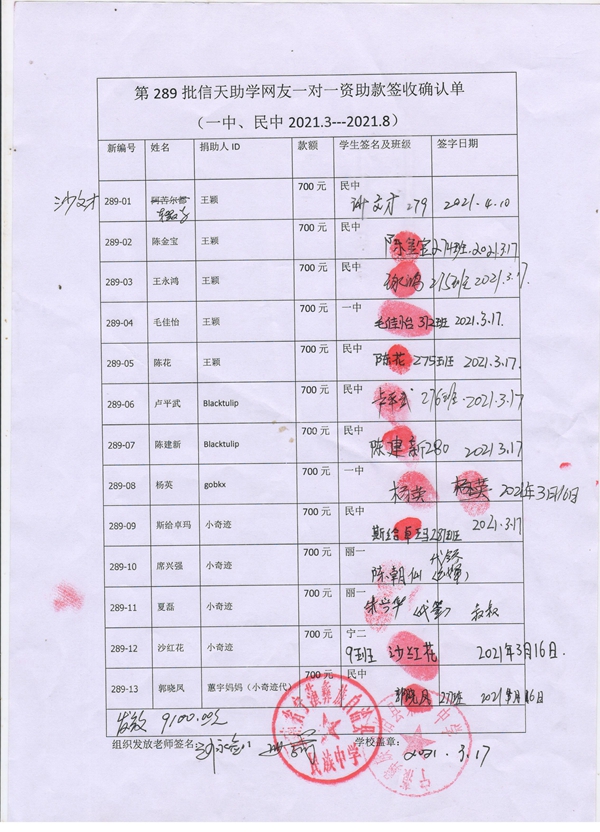 第 289 批信天助学网友一对一资助款签收确认单
（一中、民中 2021.3---2021.8）
新编号 姓名 捐助人 ID 款额 学生签名及班级 签字日期
沙文才 289-01 阿苦尔都 王颖 700 元 民中 沙文才 279 2021.4.10
289-02 陈金宝 王颖 700 元 民中 陈金宝 274班 2021.3.17
289-03 王永鸿 王颖 700 元 民中 275班 2021.3.17.
289-04 毛佳怡 王颖 700 元 一中 毛佳怡 312班 2021.3.17.
289-05 陈花 王颖 700 元 民中 陈花 275班 2021.3.17.
289-06 卢平武 Blacktulip 700 元 民中 卢平武 276班 2021.3.17
289-07 陈建新 Blacktulip 700 元 民中 陈建新280 2021.3.17
289-08 杨英 gobkx 700 元 一中 杨英 杨英 2021年3月16日
289-09 斯给卓玛 小奇迹 700 元 民中 斯给卓玛281班 2021.3.17
289-10 席兴强 小奇迹 700 元 丽一 陈朝仙
289-11 夏磊 小奇迹 700 元 丽一 叔叔
289-12 沙红花 小奇迹 700 元 宁二 9班 沙红花 2021年3月16日.
289-13 郭晓凤 蕙宇妈妈（小奇迹代） 700 元 民中 郭晓凤 278班 2021年3月16日
发放 9100.00元
组织发放老师签名: 学校盖章: 2021.3.17
省宁蒗彝族自治县
民族中学